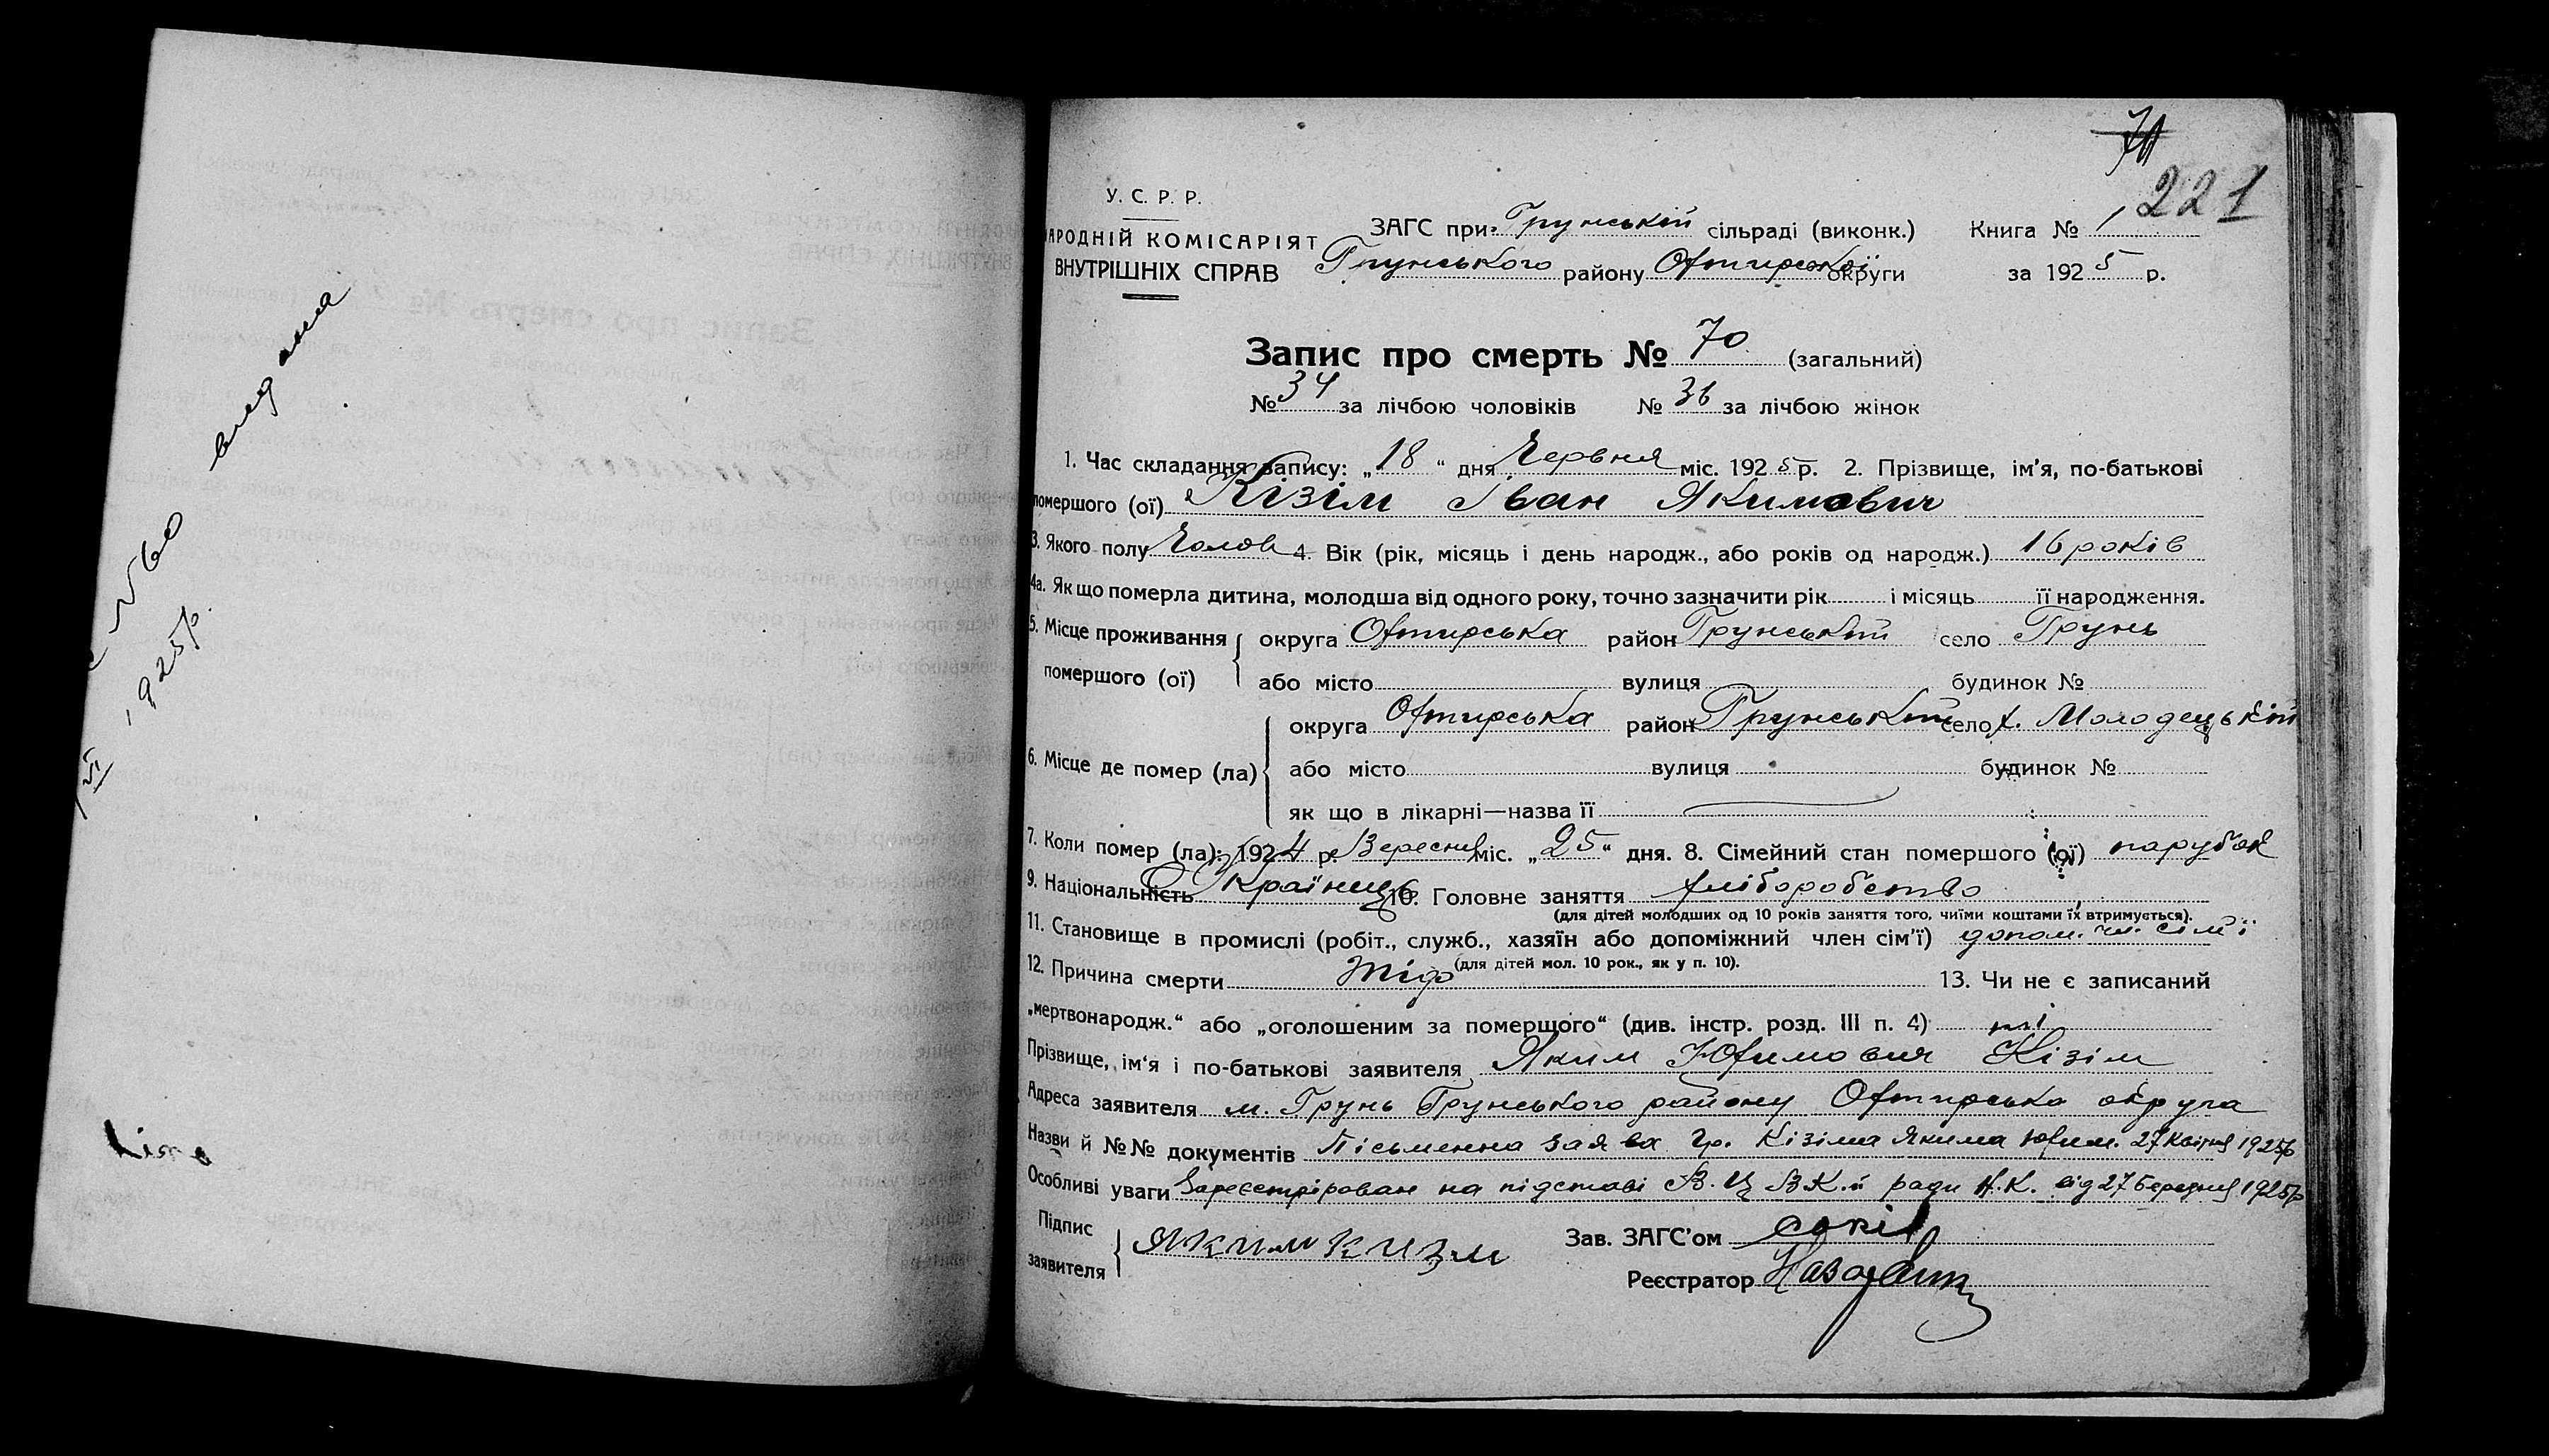 видана
1925р.
71
221
У. С. Р. Р.
НАРОДНІЙ КОМІСАРІЯТ
ВНУТРІШНІХ СПРАВ
ЗАГС при Грунській сільраді (виконк.) Книга № 1
Грунського району Охтирської округи за 1925 р.
Запис про смерть № 70 (загальний)
№ 34 за лічбою чоловіків № 36 за лічбою жінок
1. Час складання запису: „18“ дня Червня міс. 1925 р. 2. Прізвище, ім’я, по-батькові
помершого (ої) Кізім Іван Якимович
3. Якого полу Чолов 4. Вік (рік, місяць і день народж., або років од народж.) 16 років
4а. Як що померла дитина, молодша від одного року, точно зазначити рік і місяць її народження.
5. Місце проживання помершого (ої) округа Охтирська район Грунський село Грунь
або місто вулиця будинок №
6. Місце де помер (ла) округа Охтирська район Грунський село х. Молодецький
або місто вулиця будинок №
як що в лікарні—назва її
7. Коли помер (ла): 1924 р. Вересня міс. „25“ дня. 8. Сімейний стан помершого (ої) парубок
9. Національність Українець 10. Головне заняття хліборобство
(для дітей молодших од 10 років заняття того, чиїми коштами їх втримується).
11. Становище в промислі (робіт., служб., хазяїн або допоміжний член сім’ї) допом. чл. сім'ї
(для дітей мол. 10 рок., як у п. 10).
12. Причина смерти Тіф 13. Чи не є записаний
„мертвонародж.“ або „оголошеним за померщого“ (див. інстр. розд. III п. 4) ні
Прізвище, ім‘я і по-батькові заявителя Яким Юхимович Кізім
Адреса заявителя м. Грунь Грунського району Охтирська округа
Назви й №№ документів Пісьменна заява гр. Кізіма Якима Юхим. 27 Квітня 1925р
Особливі уваги Зареєстрірован на підставі В.Ц.В.К. й ради Н.К. від 27 Березня 1925р
Підпис заявителя Яким Кизм
Зав. ЗАГС’ом
Реєстратор